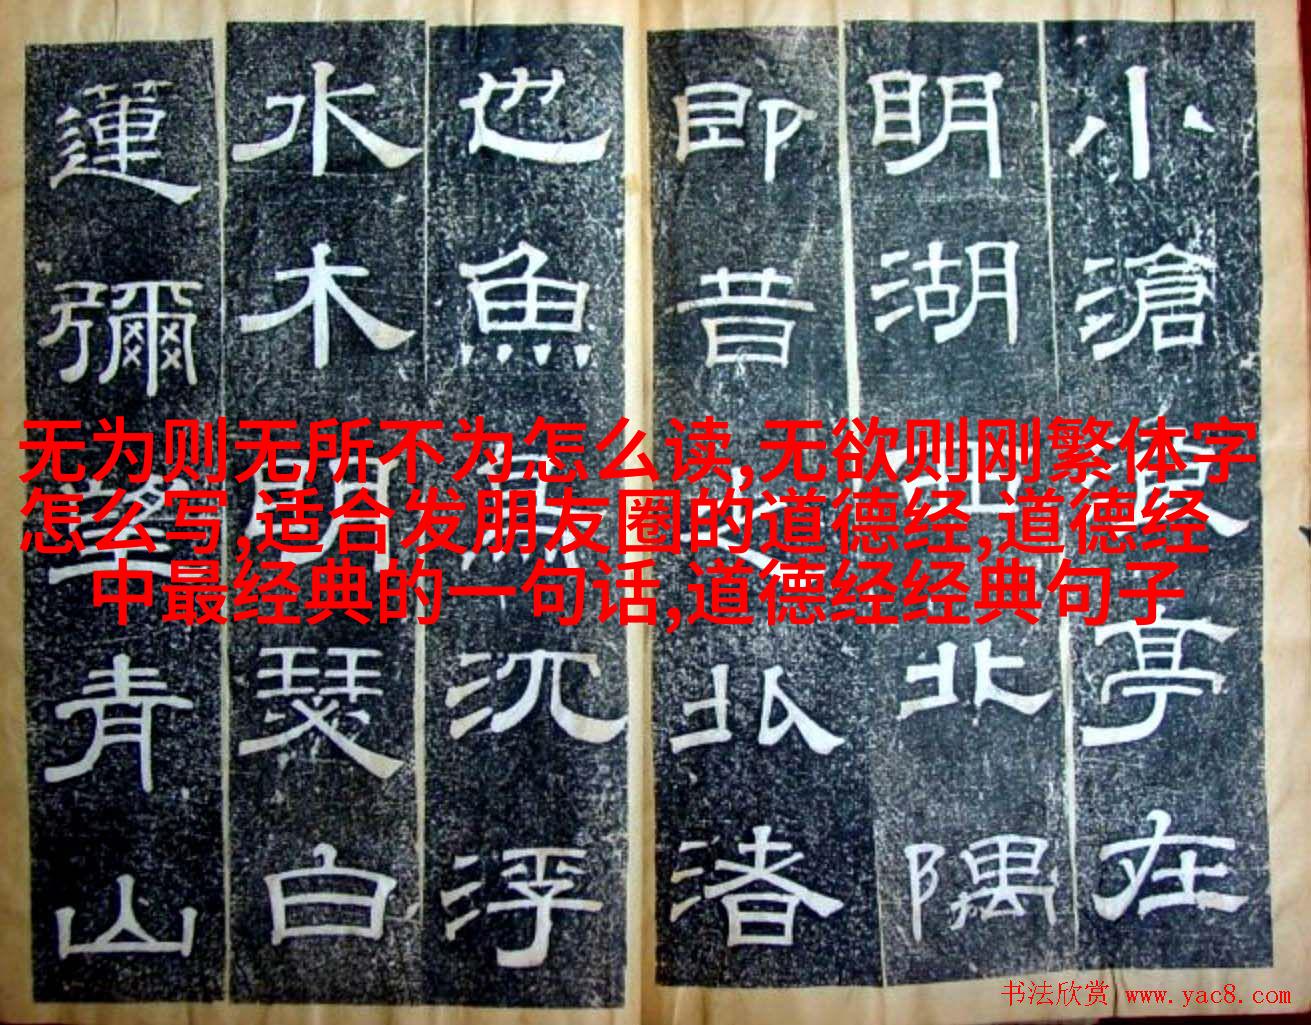 小滄亭在
明湖北隅
即昔之北渚
也魚沉浮
水木明瑟白
蓮彌望青山
无为则无所不为怎么读,无欲则刚繁体字
怎么写,适合发朋友圈的道德经,道德经
中最经典的一句话,道德经经典句子
书法欣赏 www.yac8.com